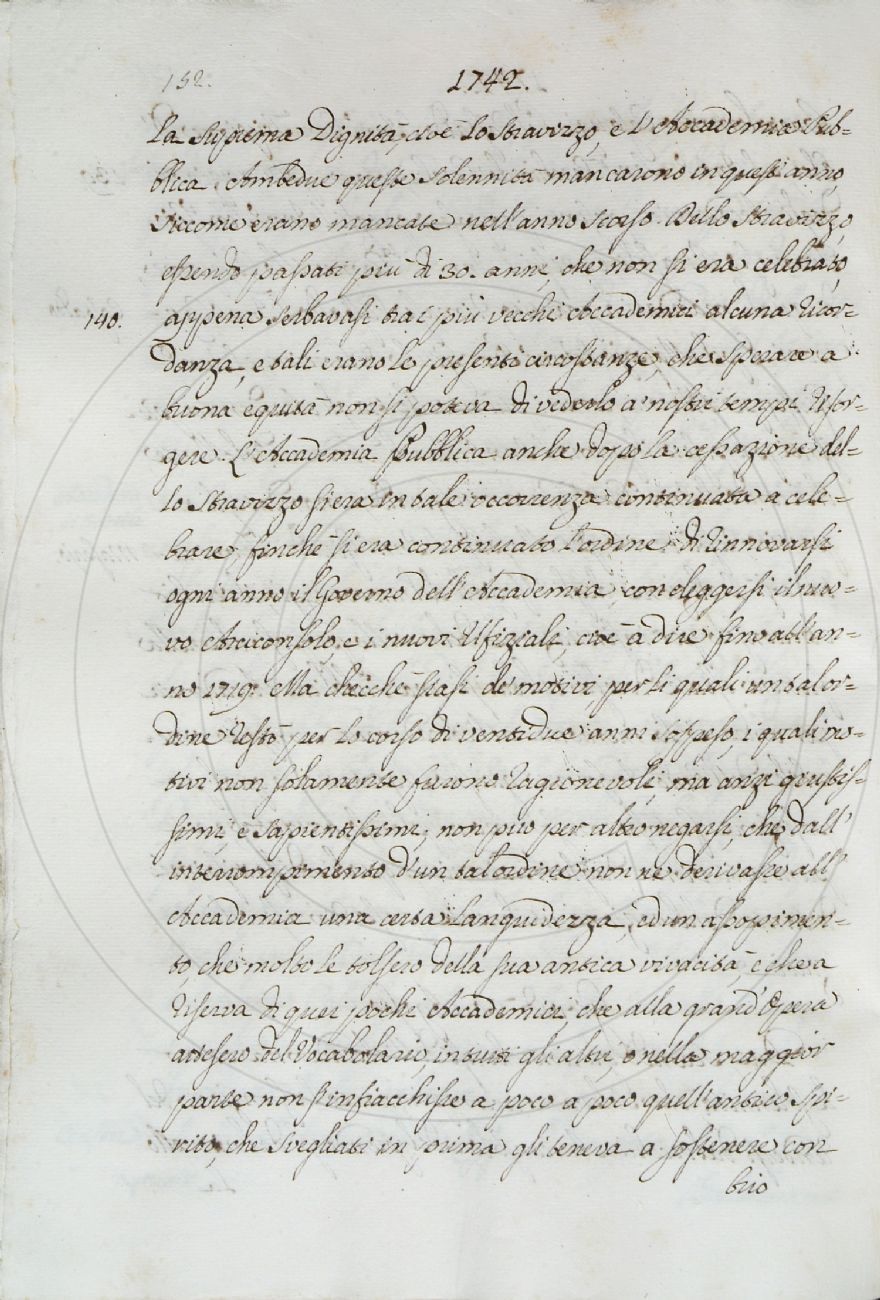 152.
1742.
la suprema Dignità, cioè lo Stravizzo, e l'Accademia Pub=
blica. Ambedue queste solennità mancarono in quest'anno,
siccome erano mancate nell'anno scorso. Dello Stravizzo,
essendo passati più di 30. anni, che non si era celebrato,
140.
appena serbavasi tra i più vecchi Accademici alcuna ricor=
danza, e tali erano le presenti circostanze, che sperare a
buona equità non si poteva di vederlo a' nostri tempi risor=
gere. L'Accademia Pubblica anche dopo la cessazione del=
lo Stravizzo si era in tale occorrenza continuata a cele=
brare, finchè si era continuato l'ordine di rinnovarsi
ogni anno il Governo dell'Accademia con eleggersi il nuo=
vo Arciconsolo, e i nuovi Ufiziali, cioè a dire fino all'an=
no 1719. Ma checchè siasi de' motivi per li quali un tal or=
dine restò per lo corso di ventidue anni sospeso, i quali mo=
tivi non solamente furono ragionevoli, ma anzi giustis=
simi, e sapientissimi, non può per altro negarsi, che dall'
interrompimento d'un tal'ordine non ne derivasse all'
Accademia una certa languidezza, ed un assopimen=
to, che molto le tolsero della sua antica vivacità, e che a
riserva di quei pochi Accademici, che alla grand'Opera
attesero del Vocabolario, in tutti gli altri, o nella maggior
parte non s'infiacchisse a poco a poco quell'antico spi=
rito, che svegliati in prima gli teneva a sostenere con
brio